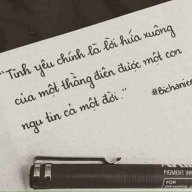 "Tình yêu chính là lời hứa xuông
của một thằng điên được một con
ngu tin cả một đời."
#Bichanier
PIGMENT